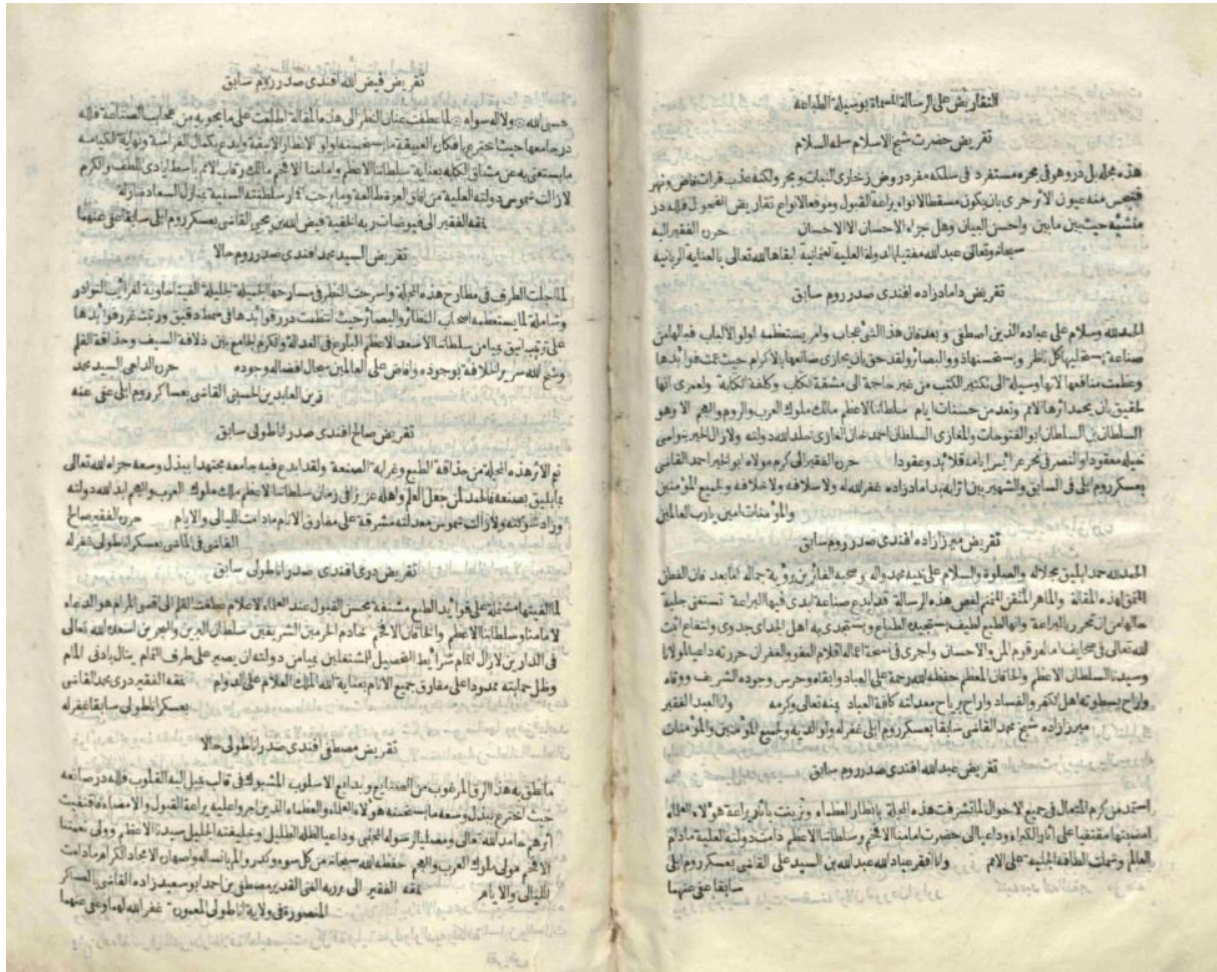 التقاريض على الرسالة المسماة بوسيلة الطباعة
تقريض حضرت شيخ الاسلام سلمه السلام
هذه مجلة در وهو فى بحره مستفرد فى سلكه مفرد روض زخارى النبات وبحر ولكنه عذب فرات فاض ونهر
منه عيون الآخر حرى بان يكون مسقطا لانواء يراعة القبول وموقعا لانواع تقاريض الفحول فلله در
منشئه حيث بين ما بين واحسن البيان وهل جزاء الاحسان الا الاحسان حرره الفقير اليه
سبحانه وتعالى عبد الله مفتيا بالدولة العلية العثمانية ابقاها الله تعالى بالعناية الربانية
تقريض دامادزاده افندى صدر روم سابق
الحمد لله وسلام على عباده الذين اصطفى وبعد فان هذا الشئ عجاب وامر يستعظمه اولو الالباب فيالها من
صناعة يستقبلها كل ناظر ويستحسنها ذوو البصائر ولقد حق بان يجازى صانعها بالاكرام حيث عمت فوائدها
وعظمت منافعها لانها وسيلة الى تكثير الكتب من غير حاجة الى مشقة الكتاب وكلفة الكتابة ولعمرى انها
لحقيق بان يحمد اثرها الامم وتعد من حسنات ايام سلطاننا الاعظم مالك ملوك العرب والروم والعجم الا وهو
السلطان بن السلطان ابو الفتوحات والمغازى السلطان احمد خان الغازى خلد الله دولته ولا زال الخير بنواصى
خيله معقودا والنصر فى نحر عرايس ايامه قلائد وعقودا حرره الفقير الى كرم مولاه ابو الخير احمد القاضى
بعسكر روم ايلى فى السابق والشهير بين اترابه بدامادزاده غفر الله له ولاسلافه ولاخلافه ولجميع المؤمنين
والمؤمنات امين يا رب العالمين
تقريض ميرزازاده افندى صدر روم سابق
الحمد لله حمدا يليق بجلاله والصلوة والسلام على نبيه محمد واله وصحبه الفائزين برؤية جماله اما بعد فان الفطن
المتقن لهذه المقالة والماهر المتقن لفحص هذه الرسالة قد ابدع صناعة ابدى فيها البراعة تستغنى جلية
حالها من ان تحرر باليراعة وانها لطبع لطيف يستجيده الطباع ويستجدى به اهل الجداى جدوى وانتفاع اثبت
الله تعالى فى صحايف اماله رقوم المن والاحسان واجرى فى نسخة اعماله اقلام العفو والغفران حررته داعيا لمولانا
وسيدنا السلطان الاعظم والخاقان المعظم حفظه الله رحمة على العباد وابقاه وحرس وجوده الشريف ووقاه
وازاح بسطوته اهل الكفر والفساد واراح برياح معدلته كافة العباد بمنه تعالى وكرمه وانا العبد الفقير
ميرزازاده شيخ محمد القاضى سابقا بعسكر روم ايلى غفر له ولوالديه ولجميع المؤمنين والمؤمنات
تقريض عبدالله افندى صدر روم سابق
استمد من كرم المتعال فى جميع الاحوال لما تشرفت هذه المجلة بانظار العظماء وتزينت باثار يراعة هؤلاء العلماء
امضيتها مقتفيا على اثار الكبراء وداعيا الى حضرت امامنا الافخم وسلطاننا الاعظم دامت دولته العلية مادام
العالم وشملت الطافه الجلية على الامم وانا افقر عباد الله عبد الله بن السيد على القاضى بعسكر روم ايلى
سابقا عفى عنهما
تقريض فيض الله افندى صدر روم سابق
حسبى الله ولا اله سواه لما عطفت عنان النظر الى هذه المقالة اطلعت على ما يحويه من عجاب الصناعة فلله
در جامعها حيث اخترع بافكاره العميقة ما يستحسنه اولو الانظار الدقيقة وابدع بكمال الفراسة ونهاية الكياسة
ما يستغنى به عن مشاق الكتابة بعناية سلطاننا الاعظم وامامنا الافخم مالك رقاب الامم باسط ايادى اللطف والكرم
لا زالت شموس دولته العلية من افاق العزة طالعة وما برحت اقمار سلطنته السنية بمنازل السعاد نازلة
نمقه الفقير الى فيوضات ربه الخفية فيض الله بن محيى القاضى بعسكر روم ايلى سابقا عفى عنهما
تقريض السيد محمد افندى صدر روم حالا
لما اجلت الطرف فى مطارح هذه المجلة واسرحت النظر فى مسارحها الجميلة الجليلة الفيتها حاوية لغرايب النوادر
وشاملة لما يستعظمه اصحاب النظائر والبصائر حيث انتظمت درر فوائدها فى سمط دقيق ورتبت غرر فوائدها
على ترتيب انيق بميامن سلطاننا الاسعد الاعظم البارع فى العدالة والكرم الجامع بين ذلاقة السيف وحذاقة القلم
وشح الله سرير الخلافة بوجوده وافاض على العالمين سجال افضاله وجوده حرره الداعى السيد محمد
زين العابدين الحسينى القاضى بعساكر روم ايلى عفى عنه
تقريض صالح افندى صدر اناطولى سابق
نم الاثر هذه المجلة من حذاقة الطبع وغرابة الصنعة ولقد ابدع فيه جامعه مجتهدا ببذل وسعه جزاه الله تعالى
بما يليق بصنعه فالحمد لمن جعل العلم واهله عززا فى زمان سلطاننا الاعظم ملاك ملوك العرب والعجم ابد الله دولته
وزاد شوكته ولا زالت شموس معدلته مشرقة على مفارق الانام ما دامت الليالى والايام حرره الفقير صالح
القاضى فى الماضى بعسكر اناطولى غفر له
تقريض درى افندى صدر اناطولى سابق
لما الفيتها مشتملة على فوائد الطبع مشنفة بحسن القبول عند العلماء الاعلام عطفت القلم الى اقصى المرام هو الدعاء
لامامنا وسلطاننا الاعظم والخاقان الافخم خادم الحرمين الشريفين سلطان البرين والبحرين اسعده الله تعالى
فى الدارين لا زال اتمام شرايط التحصيل للمشتغلين بميامن دولته ان يصير على طرف الثمام ينال بادنى المام
وظل حمايته ممدودا على مفارق جميع الانام بعناية الله الملك العلام على الدوام نمقه الفقير درى محمد القاضى
بعسكر اناطولى سابقا غفر له
تقريض مصطفى افندى صدر اناطولى حالا
ما نطق به هذا الرق المرغوب من الصنايع وبدايع الاسلوب المشبوك فى قالب يميل اليه القلوب فلله در صانعه
حيث اخترع ببذل وسعه ما يستحسنه هؤلاء العلماء والعظماء الذين اجروا عليه يراعة القبول والامضاء فاقتفيت
اثرهم حامدا لله تعالى ومصليا لرسوله المجتبى وداعيا لظله الظليل وخليفته الجليل سيدنا الاعظم وولى نعمتنا
الافخم مولى ملوك العرب والعجم حفظه الله سبحانه من كل سوء وكدر والم بانساله واصهاره الامجاد الكرام ما دامت
الليالى والايام نمقه الفقير الى ربه الغنى القدير مصطفى بن احمد ابو سعيد زاده القاضى بالعساكر
المنصورة فى ولاية اناطولى المعمورة غفر الله لهما وعفى عنهما
تقريض